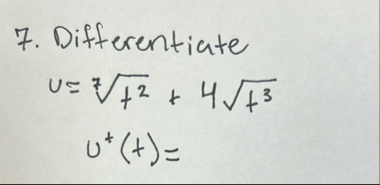 7. Differentiate
u = ⁷√t² + 4√t³
uᵗ(t) =